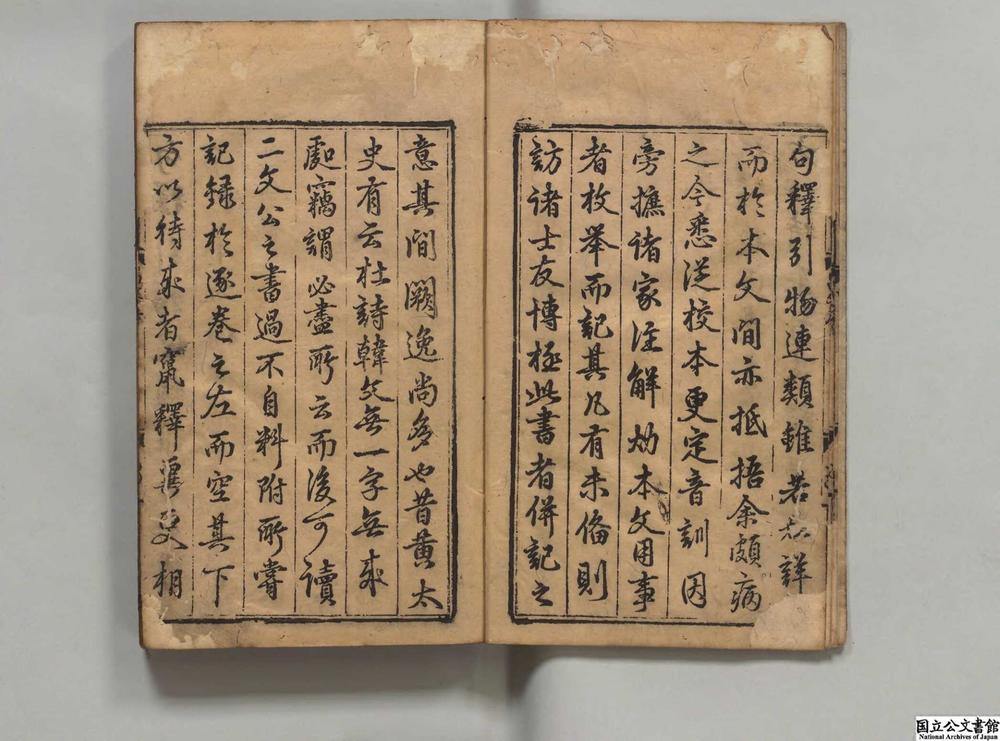 句釋引物連類雖若加詳
而於本文間亦抵捂余頗病
之今悉從校本更定音訓因
旁摭諸家注解劾本文用事
者枚舉而記其凡有未俻則
訪諸士友博極此書者併記之
意其間闕逸尚多也昔黄太
史有云杜詩韓文無一字無來
處竊謂必盡所云而後可讀
二文公之書過不自料附所嘗
記録於逐卷之左而空其下
方以待來者竄釋異更相
国立公文書館
National Archives of Japan